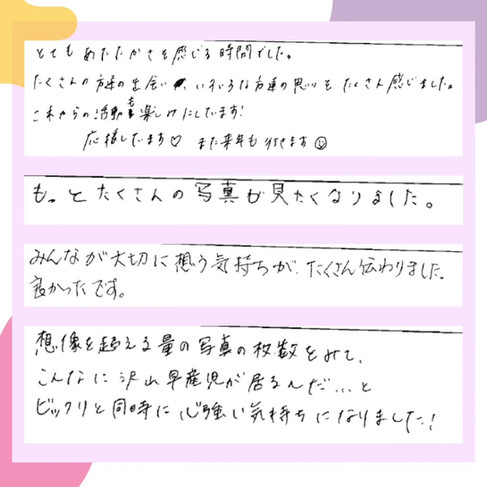 とてもあたたかさを感じる時間でした。
たくさんの方達の出会い、いろいろな方達の思いをたくさん感じました。
これからの活動も楽しみにしています!
応援しています♡ また来年も行きます☺
もっとたくさんの写真が見たくなりました。
みんなが大切に想う気持ちが、たくさん伝わりました。
良かったです。
想像を超える量の写真の枚数をみて、
こんなに沢山早産児が居るんだ...と
ビックリと同時に心強い気持ちになりました!